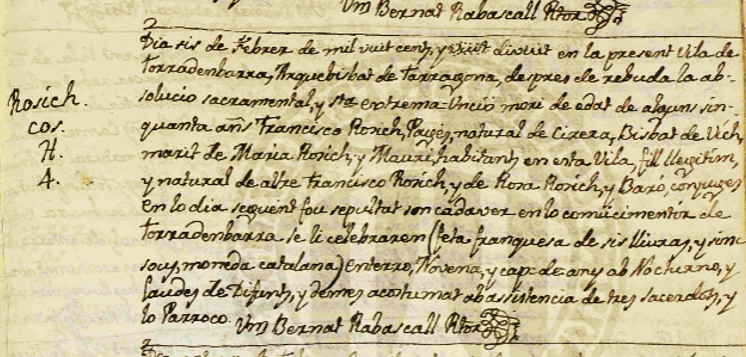 Vm Bernat Rabascall Rtor
Dia sis de Febrer de mil vuit cents, y divuit en la present Vila de
Torradenbarra, Arquebisbat de Tarragona, despres de rebuda la ab-
Rosich. solucio sacramental, y Sta extrema-Unció morí de edat de alguns sin-
cos. quanta añs Francisco Rosich, Pagès, natural de Cirera, Bisbat de Vich,
H. marit de Maria Rosich, y Mauri, habitant en esta Vila, fill llegitim,
4. y natural de altre Francisco Rosich, y de Rosa Rosich, y Baró, conjuges
en lo dia seguent fou sepultat son cadaver en lo comú cimentir de
Torradenbarra se li celebraren (feta franquesa de sis lliuras, y sinc
sous, moneda catalana) Enterro, Novena, y cap de any ab Nocturno, y
Laudes de Difunts, y demes acostumat ab assistencia de tres sacerdots, y
lo Parroco. Vm Bernat Rabascall Rtor